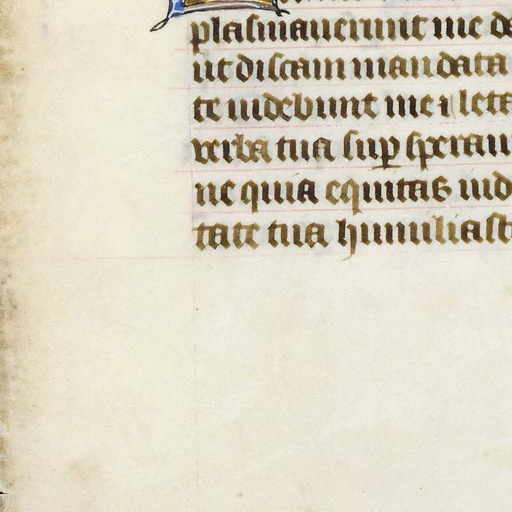 plasmauerunt me de
ut discam mandata
te uidebunt me ⁊ leta
verba tua sup sperau
ne quia equitas iud
tate tua humiliast